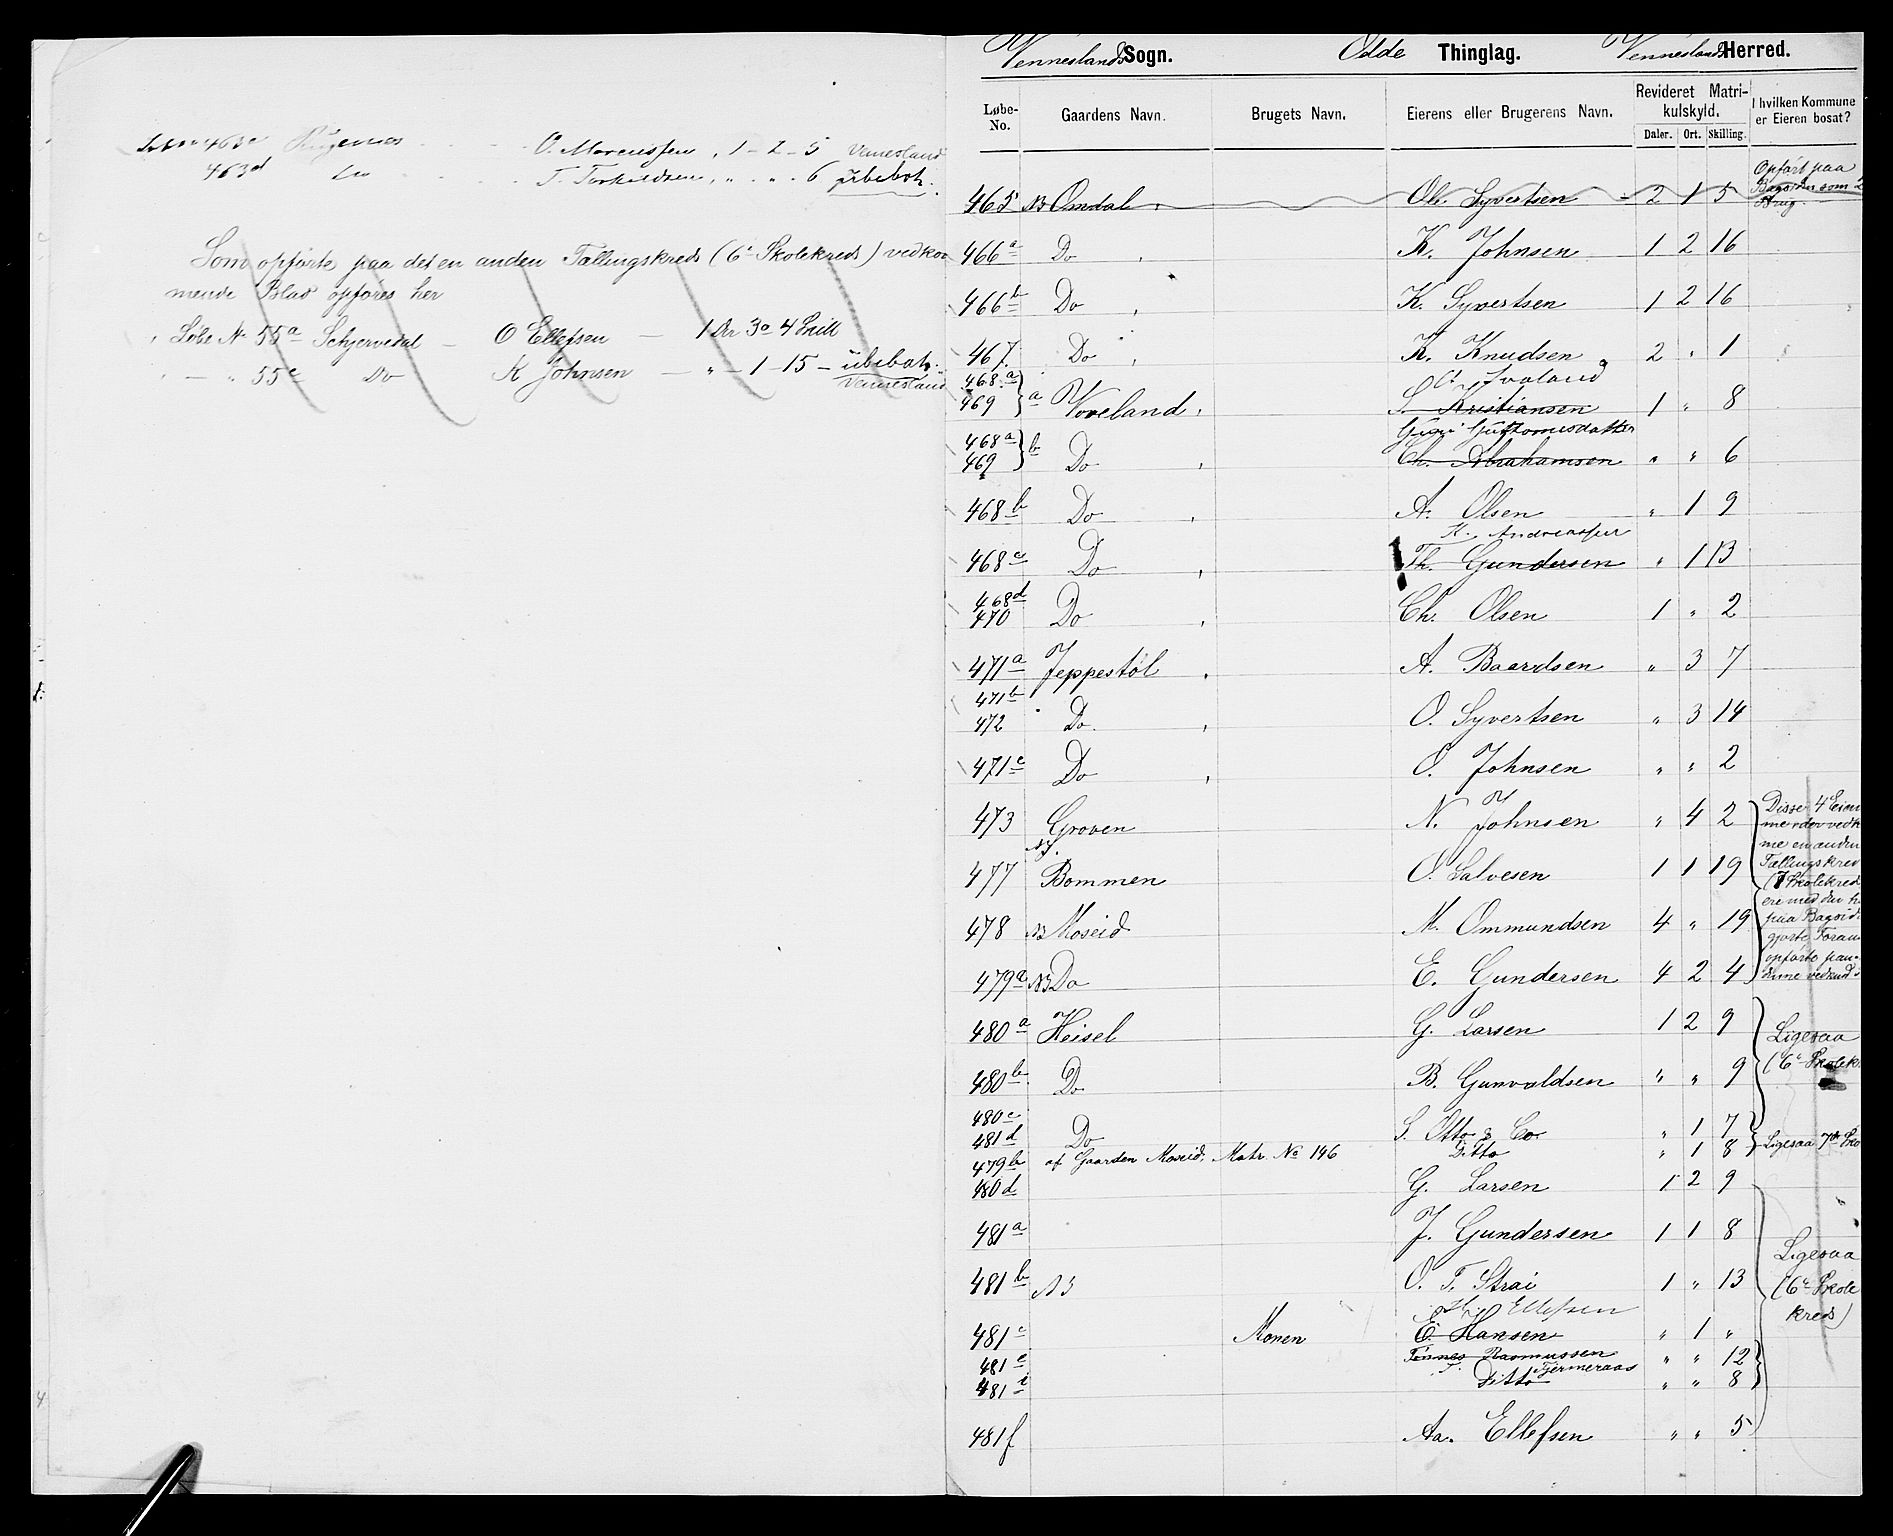 Løbe No 463c Rugenes O. Marcussen 1 - 2 - 5 Vennesland
463d Do T. Torkildsen „ „ 6 übeboet.
Som opførte paa det en anden Tællingskreds (6te Skolekreds) vedkom
mende Blad opføres her
Løbe No 55a Schjervedal - O Ellefsen - 1 Dr 3o 4 Skill
- „ 55c Do K Johnsen - „ - 1 - 15 - übeboet.
Vennesland
Venneslands Sogn. Odde Thinglag. Venneslands Herred.
Løbe-No. Gaardens Navn. Brugets Navn. Eierens eller Brugerens Navn. Revideret Matrikulskyld. I hvilken Kommune er Eieren bosat?
Daler. Ort. Skilling.
465 NB Omdal Ole Syvertsen 2 1 5 Opført paa Bagsiden som 2 Brug
466a Do K. Johnsen 1 2 16
466b Do K. Syvertsen 1 2 16
467. Do K. Knudsen 2 „ 1
468a 469 } a Voreland S. Kristiansen 1 „ 8
468a 469 } b Do Guri Guttormsdatter Ch. Abrahamsen „ „ 6
468b Do A. Olsen „ 1 9
468c Do K. Andreassen Th. Gundersen „ 1 13
468d 470 Do Ch. Olsen 1 „ 2
471a Jeppestøl A. Baardsen „ 3 7
471b 472 Do. O. Syvertsen „ 3 14
471c Do O. Johnsen „ „ 2
473 Groven N. Johnsen „ 4 2
477 Bommen O. Salvesen 1 1 19
478 NB Moseid M. Ommundsen 4 „ 19
479a NB Do E. Gundersen 4 2 4
Disse 4 Eien
en anden
Tællingskred
(7 Skolekred
paa Bagsid
opførte paa
480a Heisel G. Larsen 1 2 9 Ligesaa
480b Do B. Gunvaldsen „ „ 9 (6te Skolek.
480c 481d Do S. Otto & Co „ 1 7
479b af Gaarden Moseid, Matr. No 196 Ditto „ 1 8 Ligesaa 7de Sko
480d G. Larsen 1 2 9
481a J. Gundersen 1 1 8 Ligesaa
481b NB O. T. Strai 1 „ 13 (6te Skole
Ellefsen kreds)
481c Monen E. Hansen „ 1 „
481e Tønnes Rasmussen „ „ 12
T. Tjermeraas
481i Ditto „ „ 8
481f Aa. Ellefsen „ „ 5